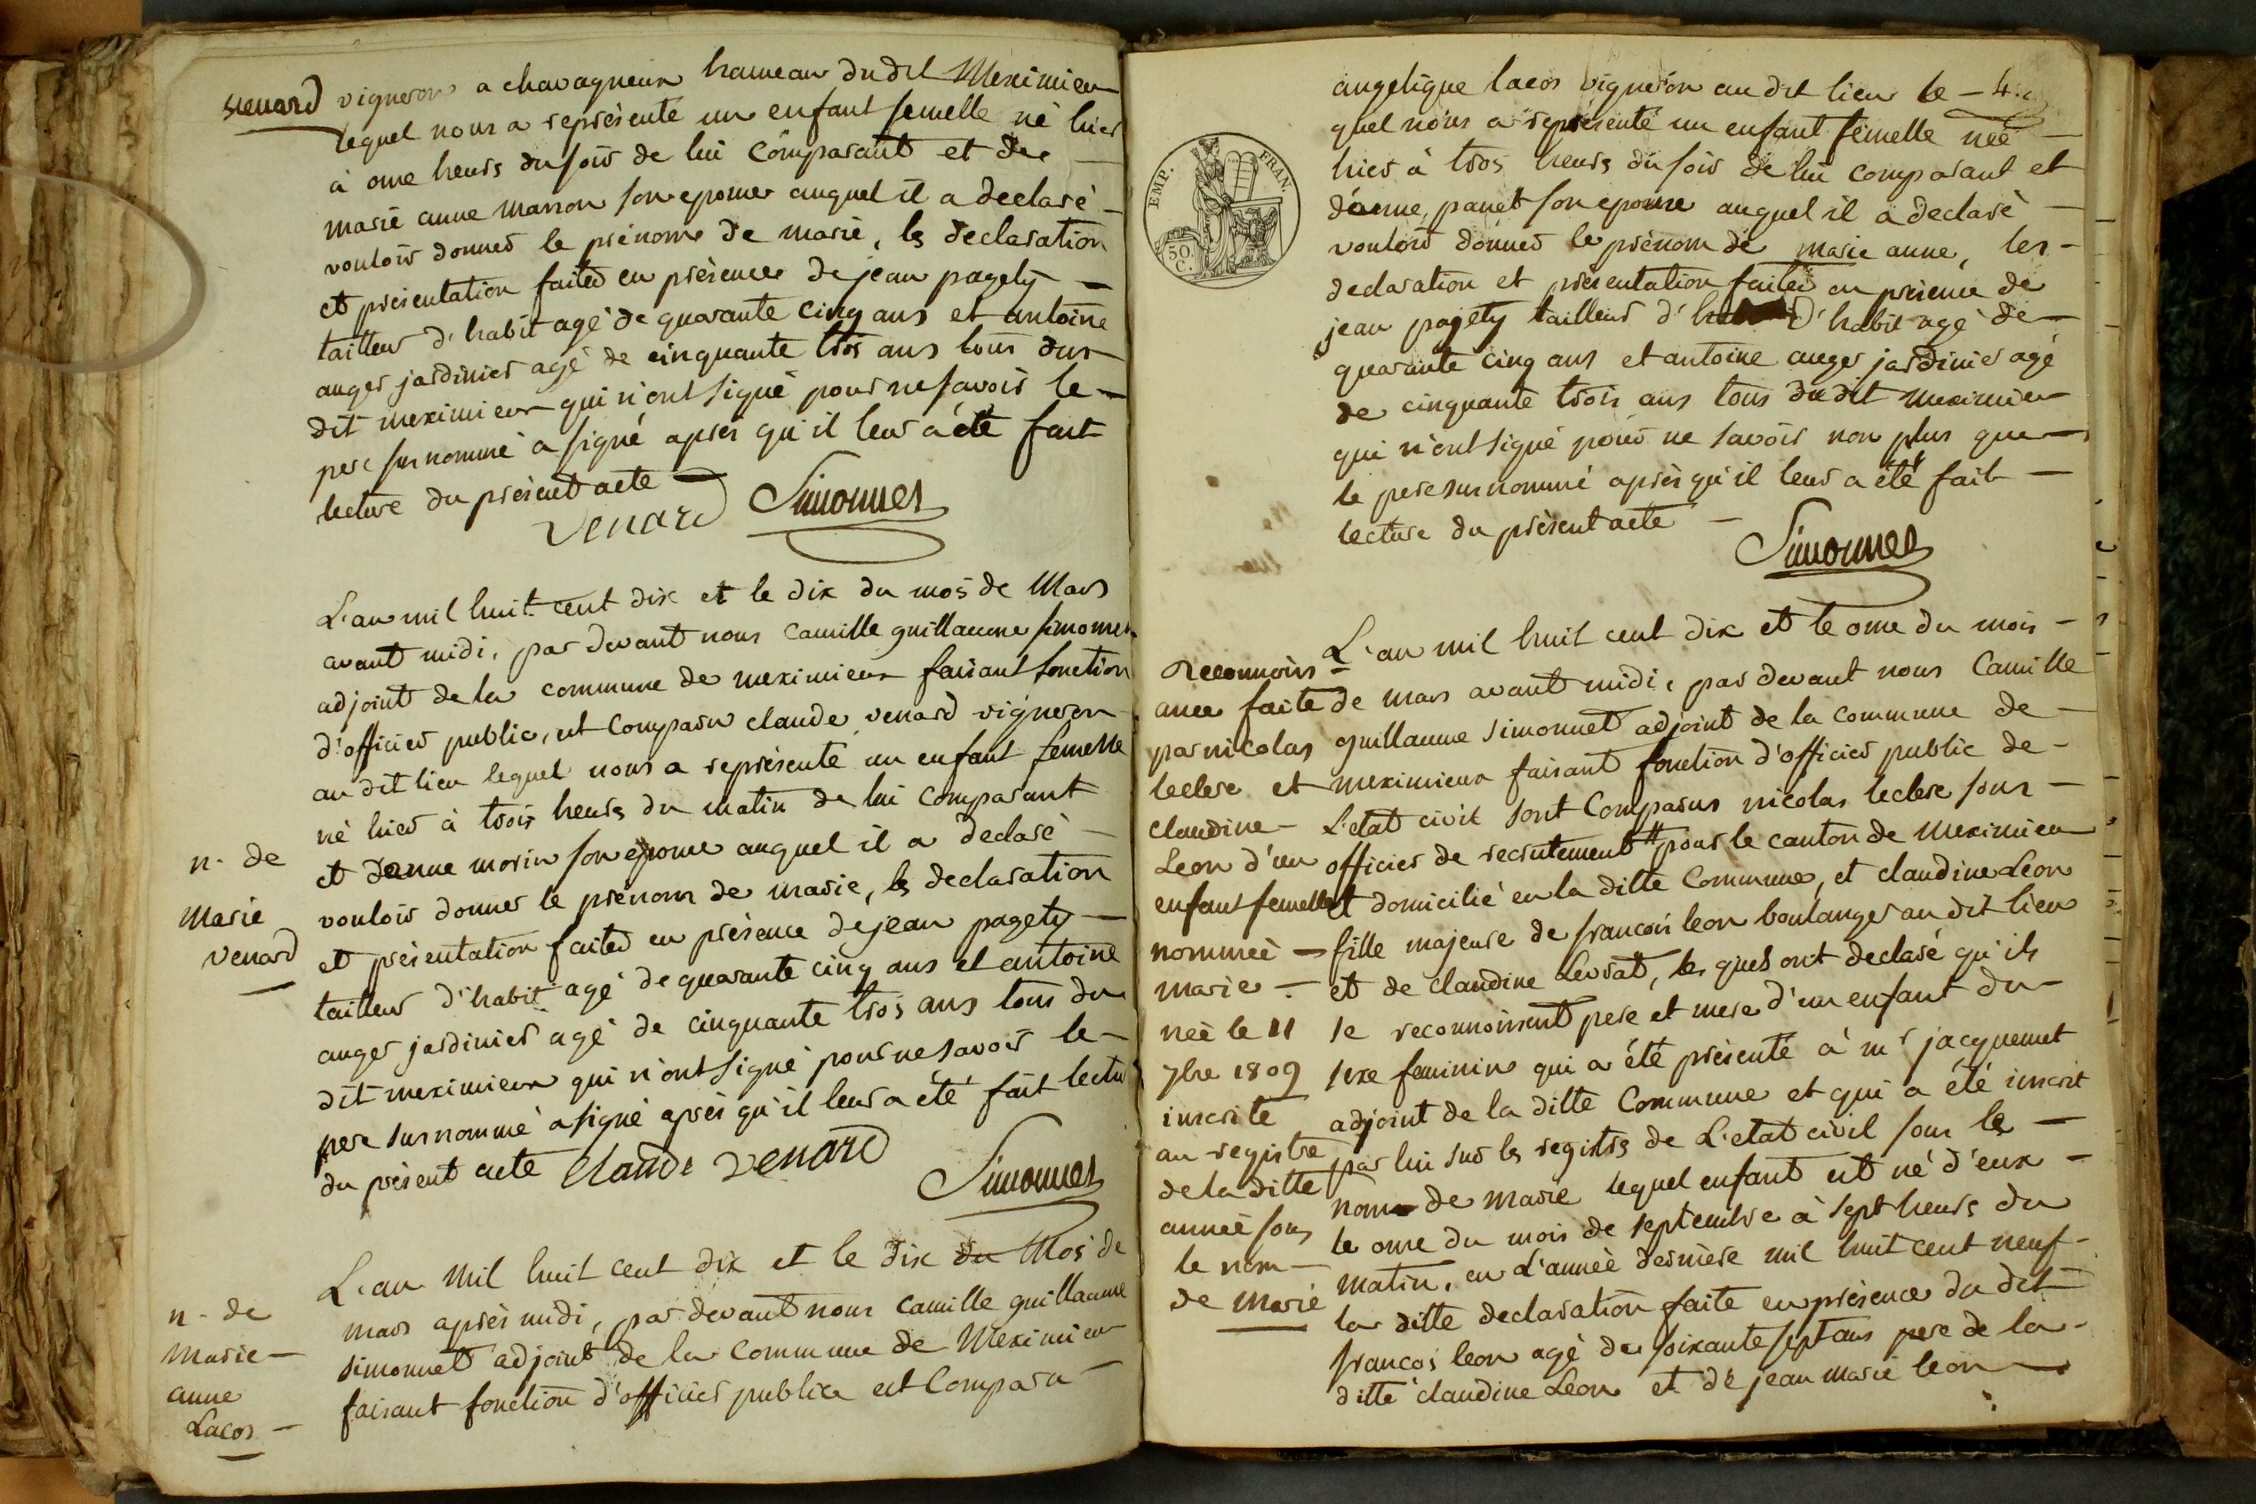 venard
vigneron a chavagneux hameau du dit Meximieux
lequel nous a représenté un enfant femelle né hier
à onze heurs du soir de lui comparant et de
marie anne marron son epouse auquel il a declaré
vouloir donner le prénom de marie, les declaration
et présentation faites en présence de jean pagety
tailleur d'habit agé de quarante cinq ans et antoine
auger jardinier agé de cinquante trois ans tous dus
dit meximieux qui n'ont signé pour ne savoir le
pere surnommé a signé après qu'il leur a été fait
lecture du présent acte
venard Simonnet
L'an mil huit cent dix et le dix du mois de Mars
avant midi, par devant nous Camille guillaume simonnet
adjoint de la commune de meximieux faisant fonction
d'officier public, est comparu claude venard vigneron
au dit lieu lequel nous a représenté un enfant femelle
né hier à trois heurs du matin de lui comparant
et d'anne morin son epouse auquel il a declaré
vouloir donner le prénom de marie, les declaration
et présentation faites en présence de jean pagety
tailleur d'habit agé de quarante cinq ans et antoine
auger jardinier agé de cinquante trois ans tous du
dit meximieux qui n'ont signé pour ne savoir le
pere surnommé a signé après qu'il leur a été fait lectu
du présent acte Claude venard
Simonnet
n. de
Marie
venard
L'an mil huit cent dix et le dix du Mois de
mars après midi, par devant nous camille guillaume
simonnet adjoint de la Commune de Meximieux
faisant fonction d'officier public est Comparu
n. de
Marie
anne
Lacos
EMP. FRAN.
50
C.
angelique lacos vigneron au dit lieu le
quel nous a représenté un enfant femelle née
hier à trois heurs du soir de lui comparant et
d'anne panet son epouse auquel il a declaré
vouloir donner le prénom de marie anne, les
declaration et présentation faites en présence de
jean pagety tailleur d' d'habit agé de
quarante cinq ans et antoine auger jardinier agé
de cinquante trois ans tous du dit meximieux
qui n'ont signé pour ne savoir non plus que
le pere surnommé après qu'il leur a été fait
lecture du présent acte
Simonnet
Reconnoiss
ance faite
par nicolas
leclerc et
claudine
Leon d'un
enfant femelle
nommeé
marie
neé le 11
7bre 1809
inscrite
au registre
de la ditte
anneé sous
le nom
de Marie
L'an mil huit cent dix et le onze du mois
de mars avant midi, par devant nous Camille
guillaume simonnet adjoint de la commune de
meximieux faisant fonction d'officier public de
L'etat civil sont Comparus nicolas leclerc sous
officier de recrutement pour le canton de Meximieux
et domicilié en la ditte Commune, et claudine Leon
fille majeure de francois leon boulanger au dit lieu
et de claudine Levrat, les quels ont declaré qu'ils
se reconnoissent pere et mere d'un enfant du
sexe feminin qui a été présenté à mr jacquemet
adjoint de la ditte Commune et qui a été inscrit
par lui sur les registrs de L'etat civil sous le
nom de marie lequel enfant est né d'eux
le onze du mois de septembre à sept heurs du
matin, en L'anneé derniere mil huit cent neuf
la ditte declaration faite en présence du dit
francois leon agé de soixante sept ans pere de la
ditte claudine Leon et de jean marie leon